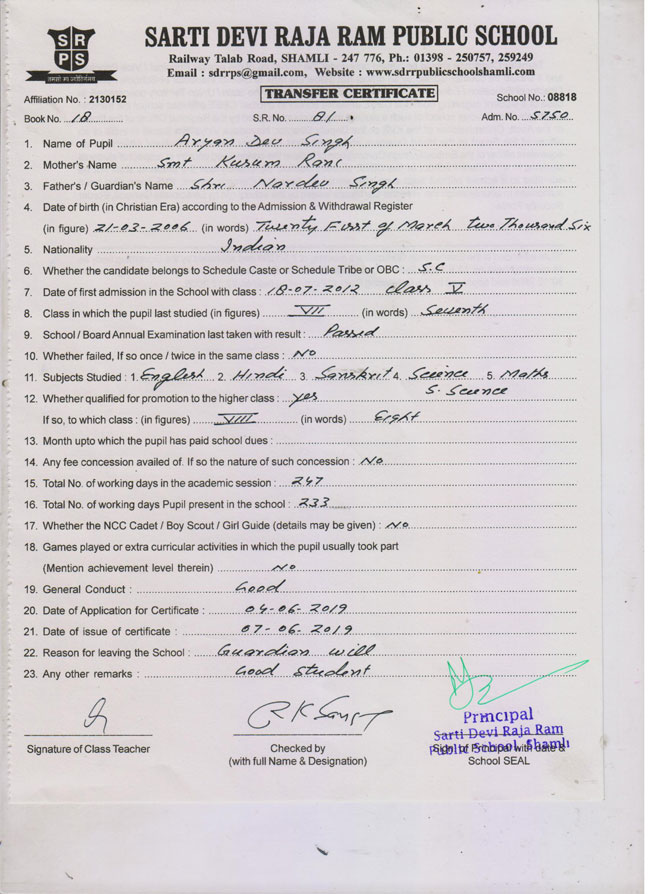 SR
PS
तमसो मा ज्योतिर्गमय
SARTI DEVI RAJA RAM PUBLIC SCHOOL
Railway Talab Road, SHAMLI - 247 776, Ph.: 01398 - 250757, 259249
Email : sdrrps@gmail.com, Website : www.sdrrpublicschoolshamli.com
TRANSFER CERTIFICATE
Affiliation No. : 2130152 School No.: 08818
Book No. 18 S.R. No. 81 Adm. No. 5750
1. Name of Pupil Aryan Dev Singh
2. Mother's Name Smt Kusum Rani
3. Father's / Guardian's Name Shri Nardev Singh
4. Date of birth (in Christian Era) according to the Admission & Withdrawal Register
(in figure) 21-03-2006 (in words) Twenty First of March two Thousand Six
5. Nationality Indian
6. Whether the candidate belongs to Schedule Caste or Schedule Tribe or OBC : S.C
7. Date of first admission in the School with class : 18-07-2012 Class V
8. Class in which the pupil last studied (in figures) VII (in words) Seventh
9. School / Board Annual Examination last taken with result : Passed
10. Whether failed, If so once / twice in the same class : No
11. Subjects Studied : 1. English 2. Hindi 3. Sanskrit 4. Science 5. Maths
S. Science
12. Whether qualified for promotion to the higher class : yes
If so, to which class : (in figures) VIII (in words) Eight
13. Month upto which the pupil has paid school dues :
14. Any fee concession availed of. If so the nature of such concession : No
15. Total No. of working days in the academic session : 247
16. Total No. of working days Pupil present in the school : 233
17. Whether the NCC Cadet / Boy Scout / Girl Guide (details may be given) : No
18. Games played or extra curricular activities in which the pupil usually took part
(Mention achievement level therein) No
19. General Conduct : Good
20. Date of Application for Certificate : 04-06-2019
21. Date of issue of certificate : 07-06-2019
22. Reason for leaving the School : Guardian will
23. Any other remarks : Good Student
Principal
Sarti Devi Raja Ram
Public School, Shamli
Signature of Class Teacher Checked by Sign. of Principal with date &
(with full Name & Designation) School SEAL